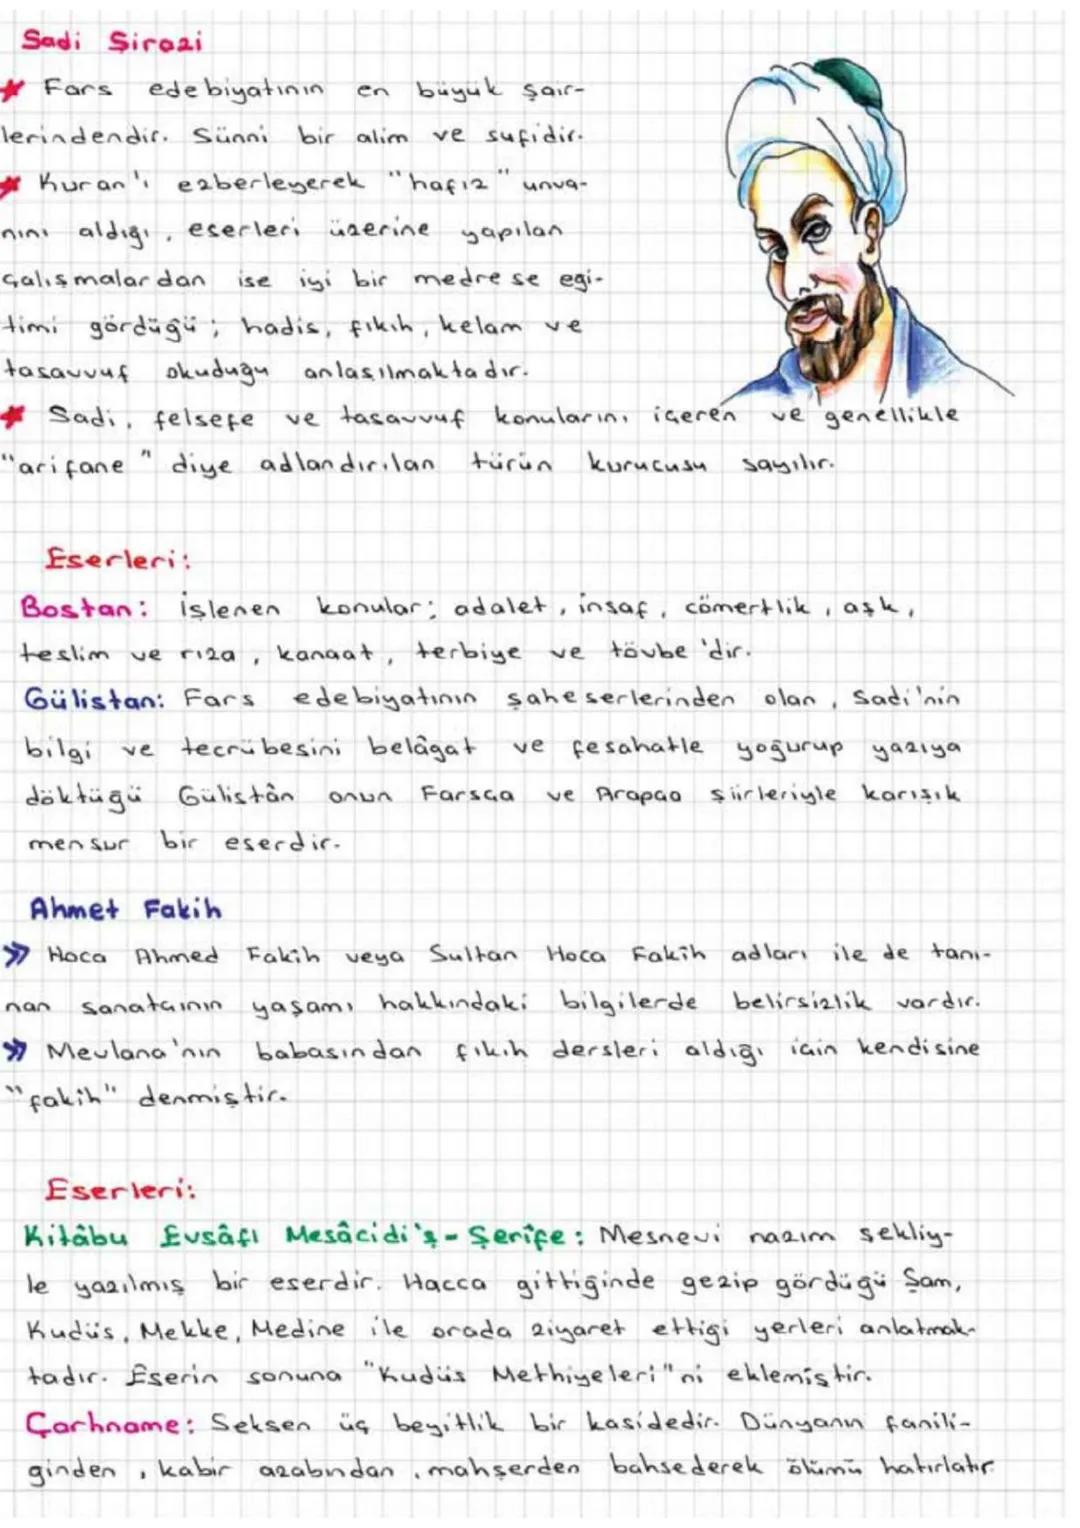 Sadi Şirazi
* Fars edebiyatının en büyük şair-
lerindendir. Sünni bir alim ve sufidir.
* Kuran'ı ezberleyerek "hafız" unva-
nını aldığı, eserleri üzerine yapılan
çalışmalardan ise iyi bir medrese eği-
timi gördüğü; hadis, fıkıh, kelam ve
tasavvuf okuduğu anlaşılmaktadır.
* Sadi, felsefe ve tasavvuf konularını içeren ve genellikle
"arifane" diye adlandırılan türün kurucusu sayılır.
Eserleri:
Bostan: İşlenen konular; adalet, insaf, cömertlik, aşk,
teslim ve rıza, kanaat, terbiye ve tövbe'dir.
Gülistan: Fars edebiyatının şaheserlerinden olan, Sadi'nin
bilgi ve tecrübesini belâgat ve fesahatle yoğurup yazıya
döktüğü Gülistân onun Farsça ve Arapça şiirleriyle karışık
mensur bir eserdir.
Ahmet Fakih
» Hoca Ahmed Fakih veya Sultan Hoca Fakîh adları ile de tanı-
nan sanatçının yaşamı hakkındaki bilgilerde belirsizlik vardır.
» Mevlana'nın babasından fıkıh dersleri aldığı için kendisine
"fakih" denmiştir.
Eserleri:
Kitâbu Evsâfı Mesâcidi'ş-Şerîfe: Mesnevi nazım şekliy-
le yazılmış bir eserdir. Hacca gittiğinde gezip gördüğü Şam,
Kudüs, Mekke, Medine ile orada ziyaret ettiği yerleri anlatmak-
tadır. Eserin sonuna "Kudüs Methiyeleri"ni eklemiştir.
Çarhname: Seksen üç beyitlik bir kasidedir. Dünyanın fanili-
ğinden, kabir azabından, mahşerden bahsederek ölümü hatırlatır.